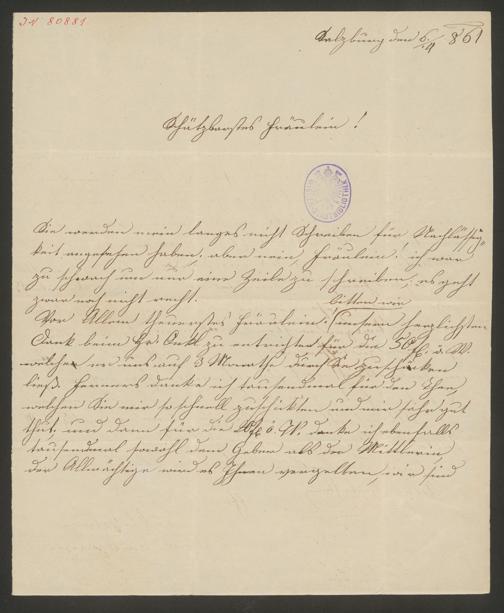 IN 80881
Salzburg den 6/4 861
Schätzbarstes Fräulein!
Sie werden mein langes nicht Schreiben für Nachläßig=
keit angesehen haben, aber nein, Fräulein! ich war
zu schwach um nur eine Zeile zu schreiben, es geht
zwar noch nicht recht.
bitten wir
Vor Allem theuerstes Fräulein! unsern herzlichsten
Dank beim Hr. zu entrichten für die 50 f. ö. W.
welche er uns auf 3 Monathe durch Sie zuschicken
ließ. Ferners danke ich tausendmal für den Thee,
welchen Sie mir so schnell zuschickten und mir sehr gut
thut. und dann für die ö. W. danke ich ebenfalls
tausendmal sowohl dem Geber als der Mittlerin,
der Allmächtige wird es Ihnen vergelten, wir sind